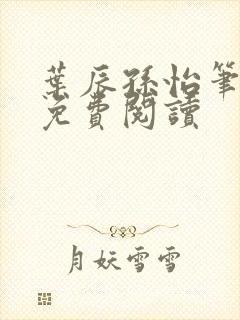 葉辰孫怡筆
免費閱讀
月妖雪雪